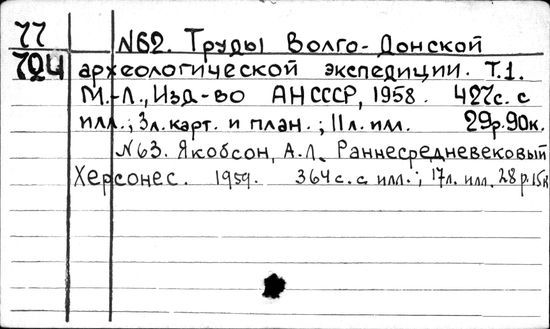 77 N62. Труды Волго-Донской
724 археологической экспедиции. Т.1.
М.-Л., Изд-во АНСССР, 1958. 427с. с
илл.; 3л. карт. и план.; 11л. илл. 29р.90к.
N63. Якобсон, А.Л. Раннесредневековый
Херсонес. 1959. 364с. с илл.; 17л. илл. 28р.15к